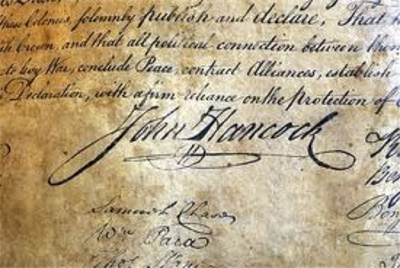 these Colonies, solemnly publish and declare, That
Crown, and that all political connection between them
to levy War, conclude Peace, contract Alliances, establish
Declaration, with a firm reliance on the protection of
John Hancock
Samuel Chase
Wm Paca
Thos